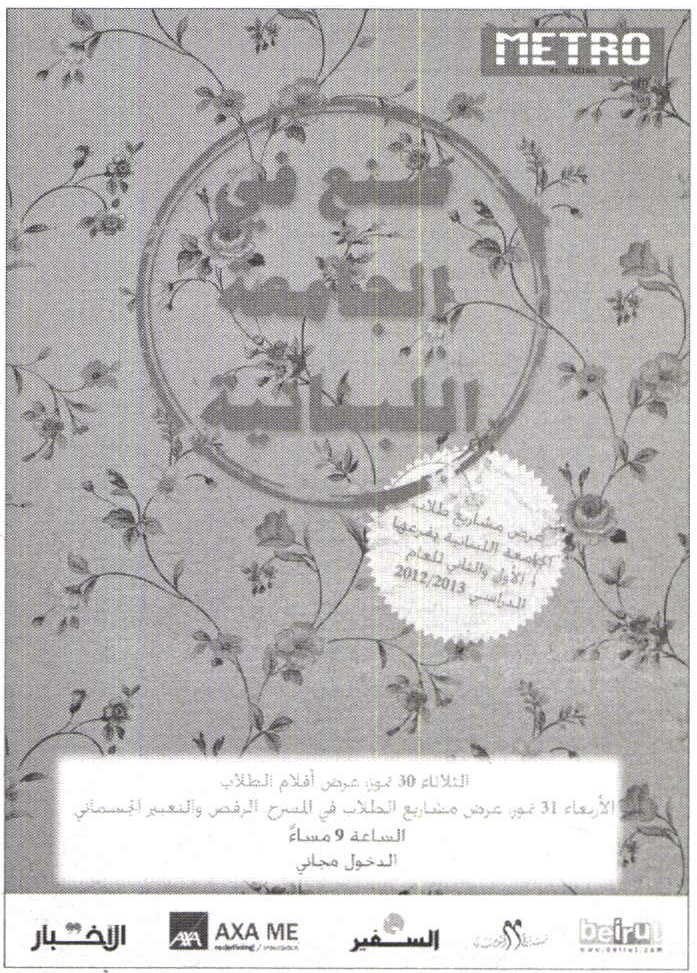 METRO
AL MADINA
صنع في
الجامعة
اللبنانية
عرض مشاريع طلاب
الجامعة اللبنانية بفرعيها
الأول والثاني للعام
الدراسي 2012/2013
الثلاثاء 30 تموز، عرض أفلام الطلاب
الأربعاء 31 تموز، عرض مشاريع الطلاب في المسرح الرقص والتعبير الجسماني
الساعة 9 مساءً
الدخول مجاني
الأخبار
AXA ME
redefining / insurance
السفير
beirut
www.beirut.com